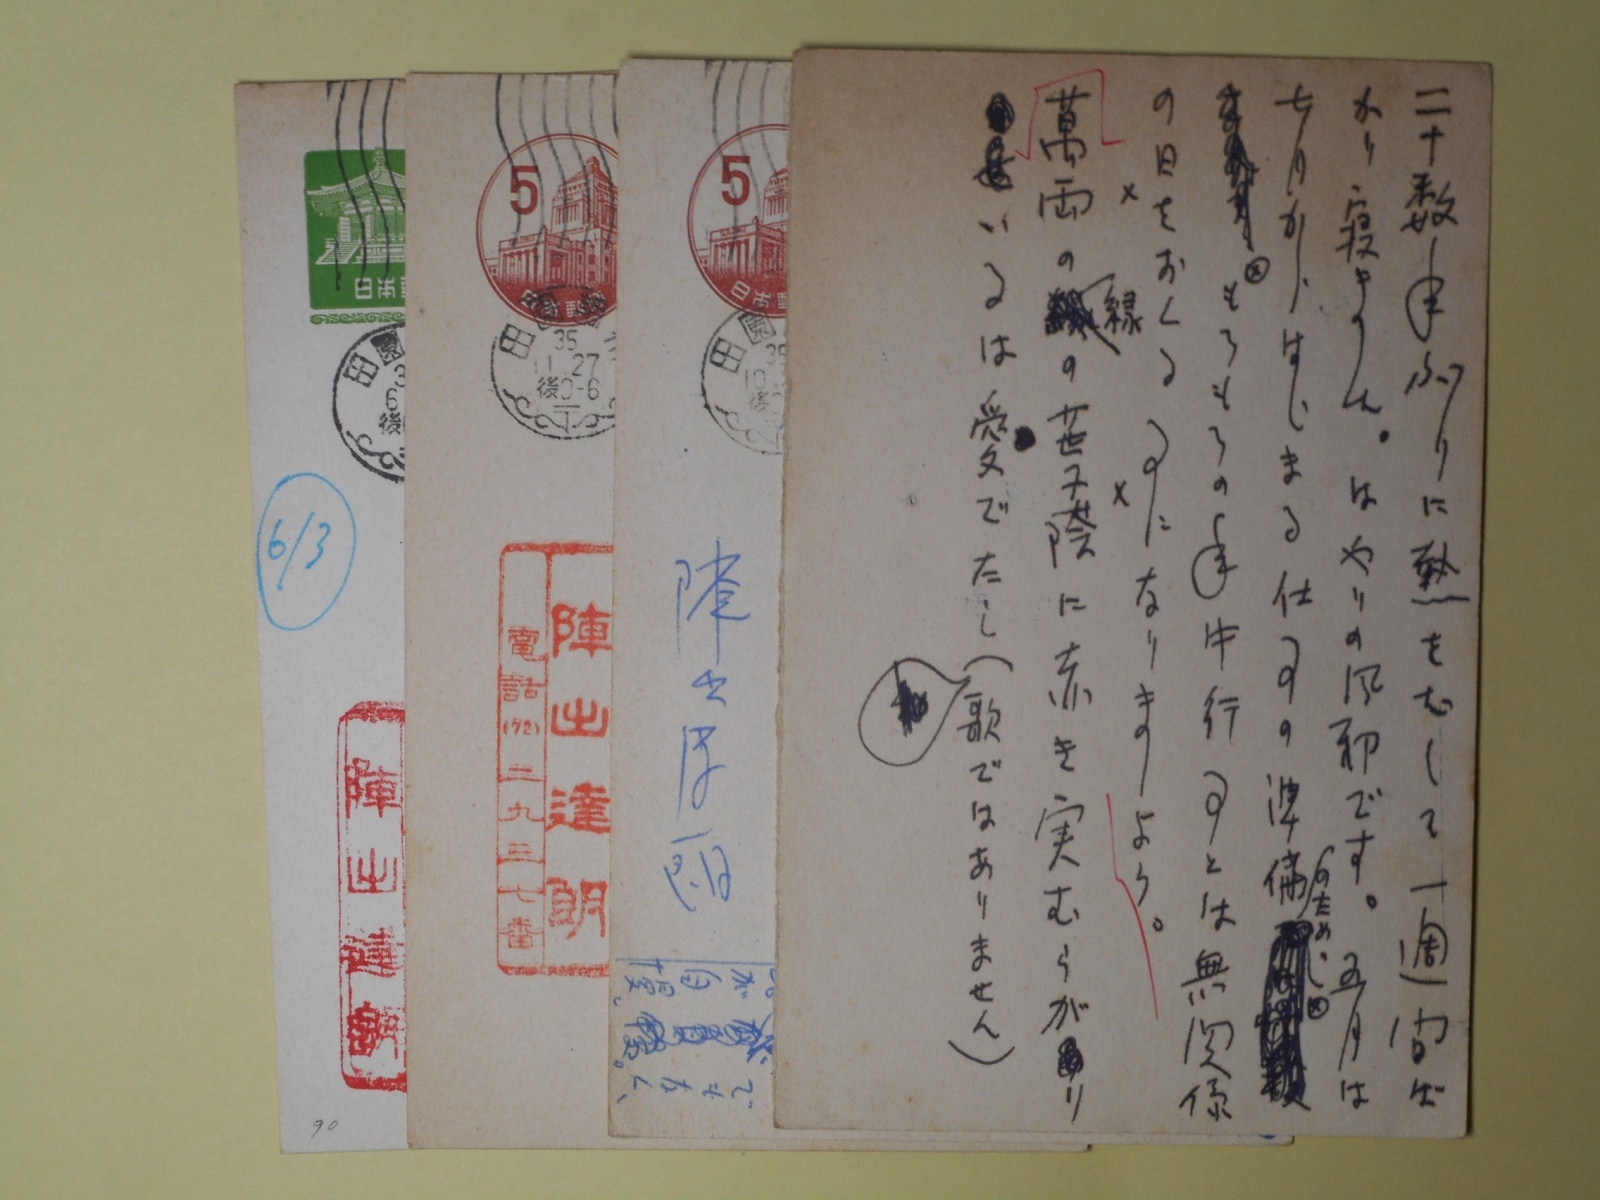 二十数年ぶりに熱をだして一週間ば
かり寝ました。はやりの風邪です。五月は
七月からはじまる仕事の準備
のためし
もろもろの年中行事とは無関係
の日をおくる事になりましょう。
萬両の
縁
の葉陰に赤き実むらがり
いるは愛でたし(歌ではありません)
5
日本
田園
35
10
後
陣出達朗
が自
でもなく、
5
日本郵便
田園
35
11.27
後0-6
陣出達朗
電話(72)二九三七番
日本
田園
3
6
後
6/3
陣出達朗
90